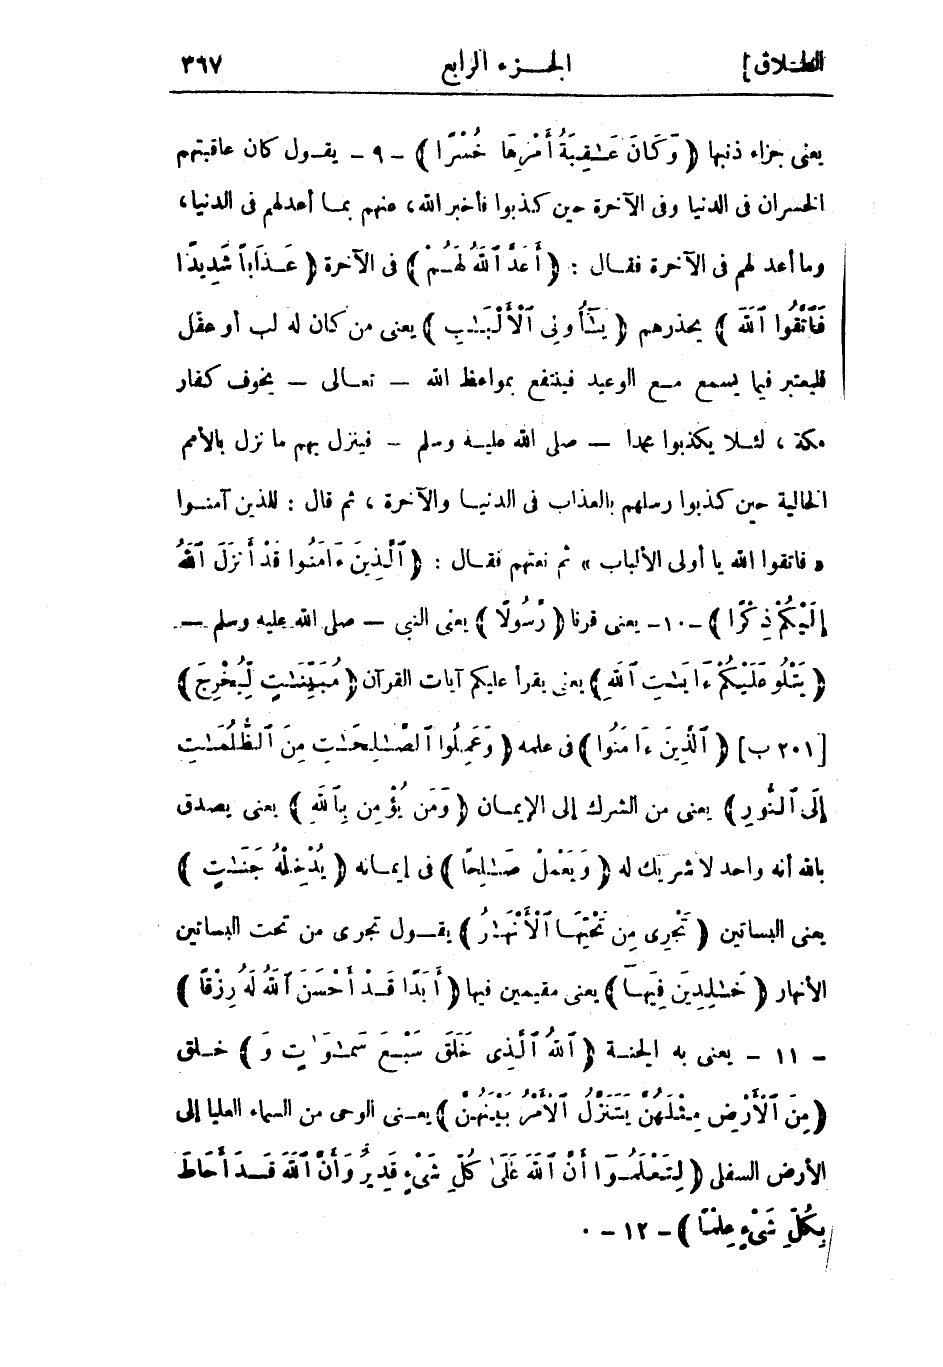 الطلاق]   الجـزء الرابع   ٣٦٧
يعنى جزاء ذنبها ﴿ وَكَانَ عَـٰقِبَةُ أَمْرِهَا خُسْرًا ﴾ - ٩ - يقـول كان عاقبتهم
الخسران فى الدنيا وفى الآخرة حين كذبوا فأخبر الله، عنهم بمـا أعدلهم فى الدنيا،
وما أعد لهم فى الآخرة فقـال : ﴿ أَعَدَّ ٱللَّهُ لَهُـمْ ﴾ فى الآخرة ﴿ عَـذَابًا شَدِيدًا
فَٱتَّقُوا ٱللَّهَ ﴾ يحذرهم ﴿ يَـٰٓأُولِى ٱلْأَلْبَـٰبِ ﴾ يعنى من كان له لب أو عقل
فليعتبر فيما يسمع مـع الوعيد فينتفع بمواعظ الله — تعـالى — يخوف كفار
مكة ، لئـلا يكذبوا محمدا — صلى الله عليـه وسلم — فينزل بهم ما نزل بالأمم
الخالية حين كذبوا رسلهم بالعذاب فى الدنيـا والآخرة ، ثم قال : للذين آمنـوا
« فاتقوا الله يا أولى الألباب » ثم نعتهم فقـال : ﴿ ٱلَّذِينَ ءَامَنُوا قَدْ أَنزَلَ ٱللَّهُ
إِلَيْكُمْ ذِكْرًا ﴾ -١٠- يعنى قرنا ﴿ رَّسُولًا ﴾ يعنى النبى — صلى الله عليه وسلم —
﴿ يَتْلُو عَلَيْكُمْ ءَايَـٰتِ ٱللَّهِ ﴾ يعنى يقرأ عليكم آيات القرآن ﴿ مُبَيِّنَـٰتٍ لِّيُخْرِجَ ﴾
[٢٠١ ب] ﴿ ٱلَّذِينَ ءَامَنُوا ﴾ فى علمه ﴿ وَعَمِلُوا ٱلصَّـٰلِحَـٰتِ مِنَ ٱلظُّلُمَـٰتِ
إِلَى ٱلنُّورِ ﴾ يعنى من الشرك إلى الإيمـان ﴿ وَمَن يُؤْمِن بِٱللَّهِ ﴾ يعنى يصدق
بالله أنه واحد لا شريك له ﴿ وَيَعْمَلْ صَـٰلِحًا ﴾ فى إيمـانه ﴿ يُدْخِلْهُ جَنَّـٰتٍ ﴾
يعنى البساتين ﴿ تَجْرِى مِن تَحْتِهَـا ٱلْأَنْهَـٰرُ ﴾ يقـول تجرى من تحت البساتين
الأنهار ﴿ خَـٰلِدِينَ فِيهَـآ ﴾ يعنى مقيمين فيها ﴿ أَبَدًا قَـدْ أَحْسَنَ ٱللَّهُ لَهُ رِزْقًا ﴾
- ١١ - يعنى به الجنـة ﴿ ٱللَّهُ ٱلَّذِى خَلَقَ سَبْـعَ سَمَـٰوَٰتٍ وَ ﴾ خـلق
﴿ مِنَ ٱلْأَرْضِ مِثْلَهُنَّ يَتَنَزَّلُ ٱلْأَمْرُ بَيْنَهُنَّ ﴾ يعـنى الوحى من السماء العليا إلى
الأرض السفلى ﴿ لِتَعْلَمُـوٓا أَنَّ ٱللَّهَ عَلَىٰ كُلِّ شَىْءٍ قَدِيرٌ وَأَنَّ ٱللَّهَ قَـدْ أَحَاطَ
بِكُلِّ شَىْءٍ عِلْمًا ﴾ - ١٢ - .